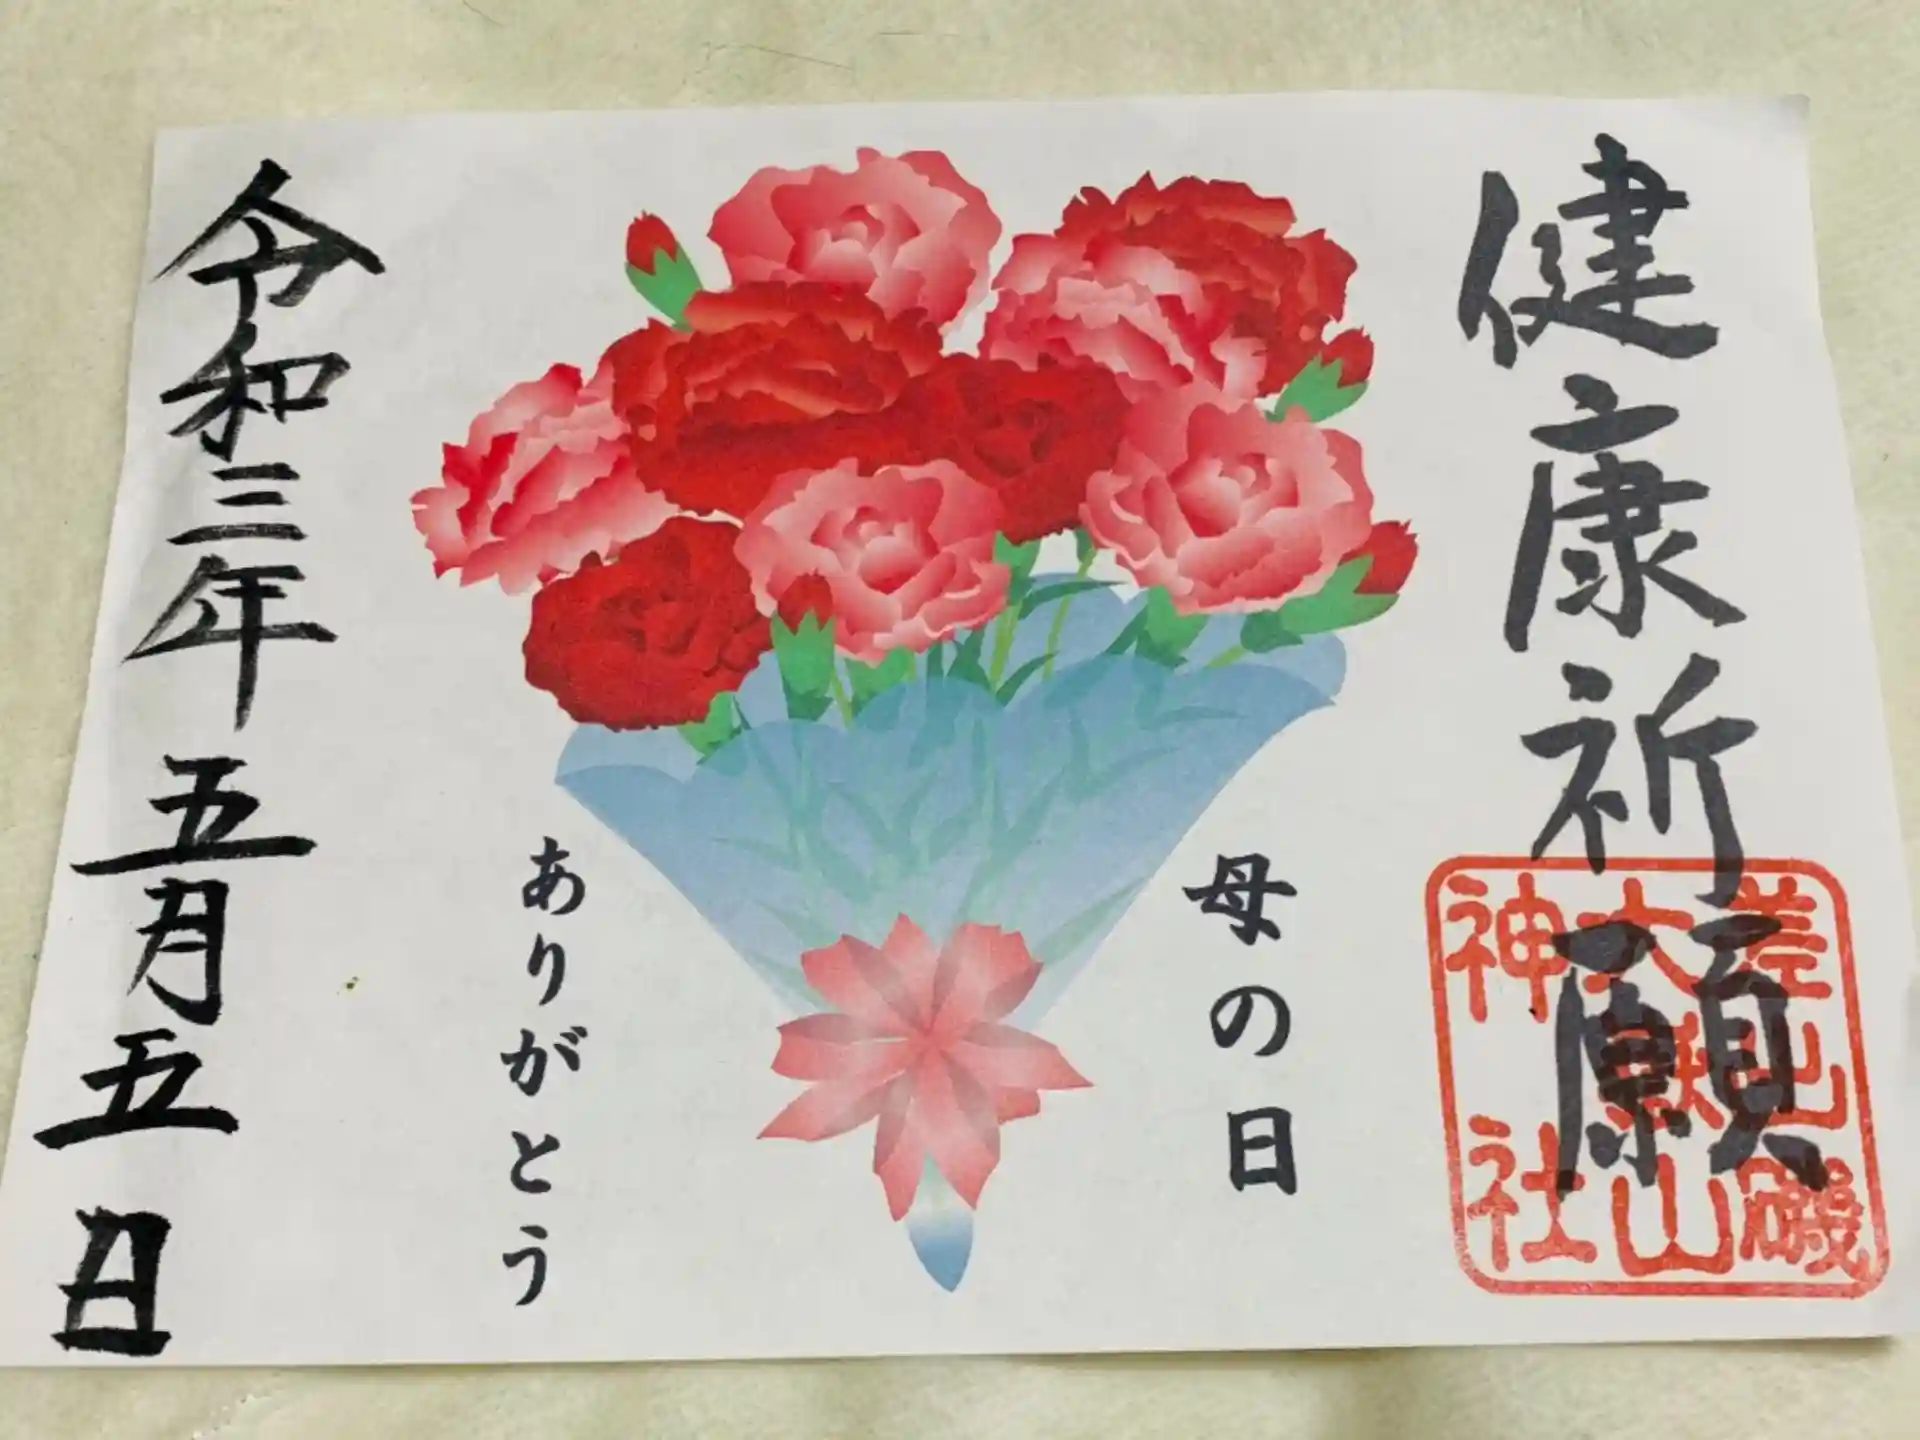 健康祈願
差出磯
大嶽山
神社
母の日
ありがとう
令和三年五月五日